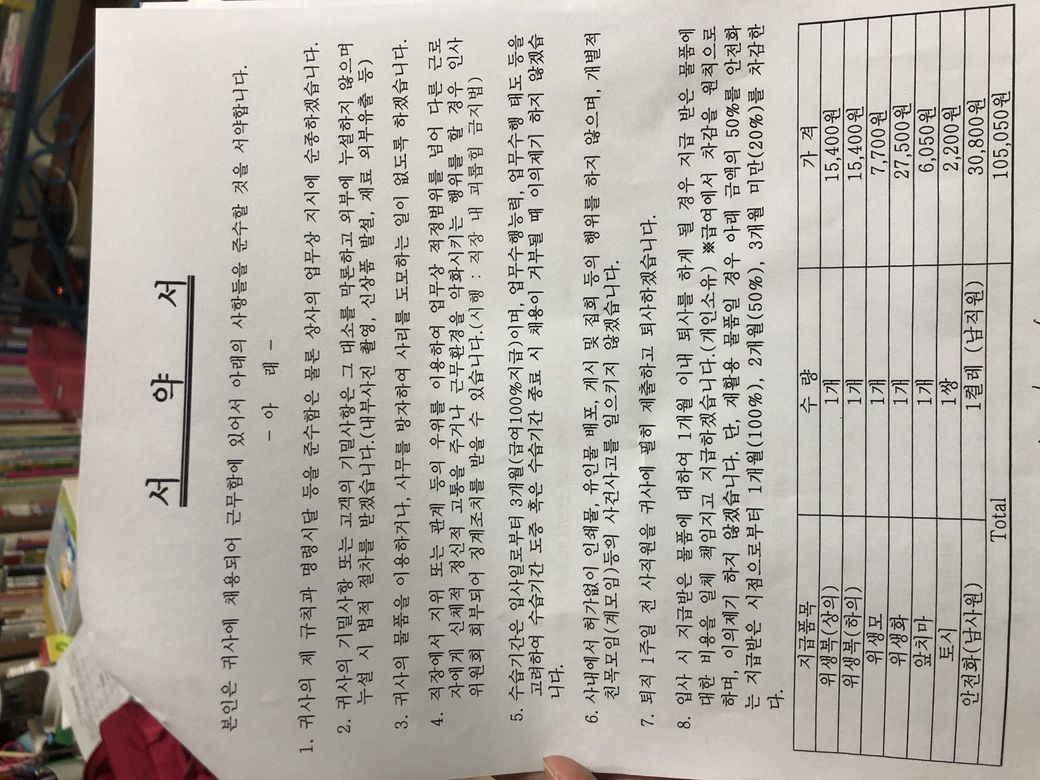 서 약 서
본인은 귀사에 채용되어 근무함에 있어서 아래의 사항들을 준수할 것을 서약합니다.
- 아 래 -
1. 귀사의 제 규칙과 명령시달 등을 준수함은 물론 상사의 업무상 지시에 순종하겠습니다.
2. 귀사의 기밀사항 또는 고객의 기밀사항은 그 대소를 막론하고 외부에 누설하지 않으며
누설 시 법적 절차를 받겠습니다.(내부사진 촬영, 신상품 발설, 재료 외부유출 등)
3. 귀사의 물품을 이용하거나, 사무를 방자하여 사리를 도모하는 일이 없도록 하겠습니다.
4. 직장에서 지위 또는 관계 등의 우위를 이용하여 업무상 적정범위를 넘어 다른 근로
자에게 신체적 정신적 고통을 주거나 근무환경을 악화시키는 행위를 할 경우 인사
위원회 회부되어 징계조치를 받을 수 있습니다.(시행 : 직장 내 괴롭힘 금지법)
5. 수습기간은 입사일로부터 3개월(급여100%지급)이며, 업무수행능력, 업무수행 태도 등을
고려하여 수습기간 도중 혹은 수습기간 종료 시 채용이 거부될 때 이의제기 하지 않겠습
니다.
6. 사내에서 허가없이 인쇄물, 유인물 배포, 게시 및 집회 등의 행위를 하지 않으며, 개별적
친목모임(계모임)등의 사건사고를 일으키지 않겠습니다.
7. 퇴직 1주일 전 사직원을 귀사에 필히 제출하고 퇴사하겠습니다.
8. 입사 시 지급받은 물품에 대하여 1개월 이내 퇴사를 하게 될 경우 지급 받은 물품에
대한 비용을 일체 책임지고 지급하겠습니다.(개인소유) ※급여에서 차감을 원칙으로
하며, 이의제기 하지 않겠습니다. 단, 재활용 물품일 경우 아래 금액의 50%를 안전화
는 지급받은 시점으로부터 1개월(100%), 2개월(50%), 3개월 미만(20%)를 차감한
다.
지급품목 수 량 가 격
위생복(상의) 1개 15,400원
위생복(하의) 1개 15,400원
위생모 1개 7,700원
위생화 1개 27,500원
앞치마 1개 6,050원
토시 1쌍 2,200원
안전화(남사원) 1켤레 (남직원) 30,800원
Total 105,050원